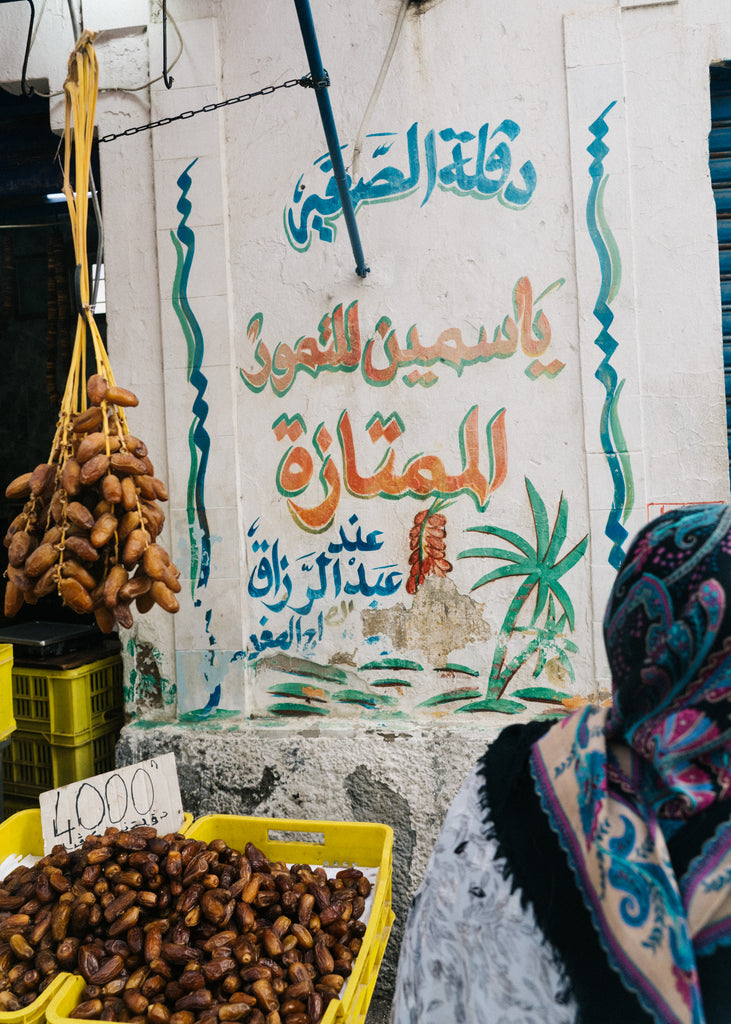 دقلة الصفية
ياسمين للتمور
الممتازة
عند
عبد الرزاق
4000